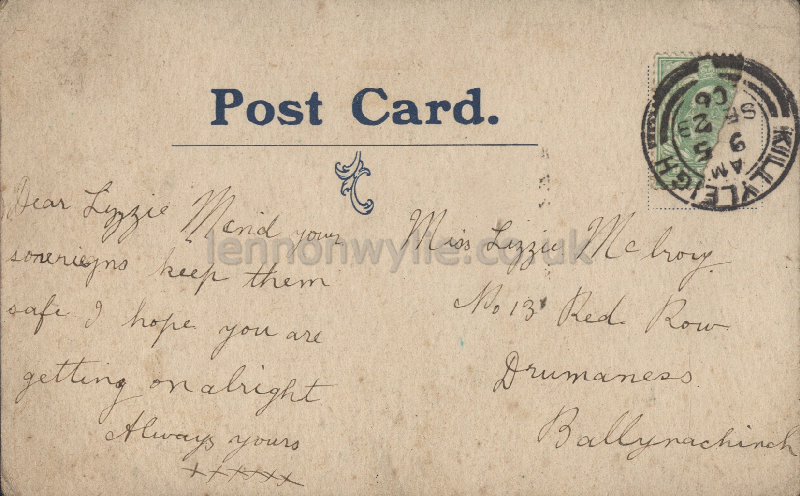 Post Card.
Dear Lizzie Mend your
sovereigns keep them
safe I hope you are
getting on alright
Always yours
xxxxxx
Miss Lizzie McIlroy
No 13 Red Row
Drumaness
Ballynahinch
KILLYLEIGH
9 15 AM
SE 23
06
lennonwylie.co.uk